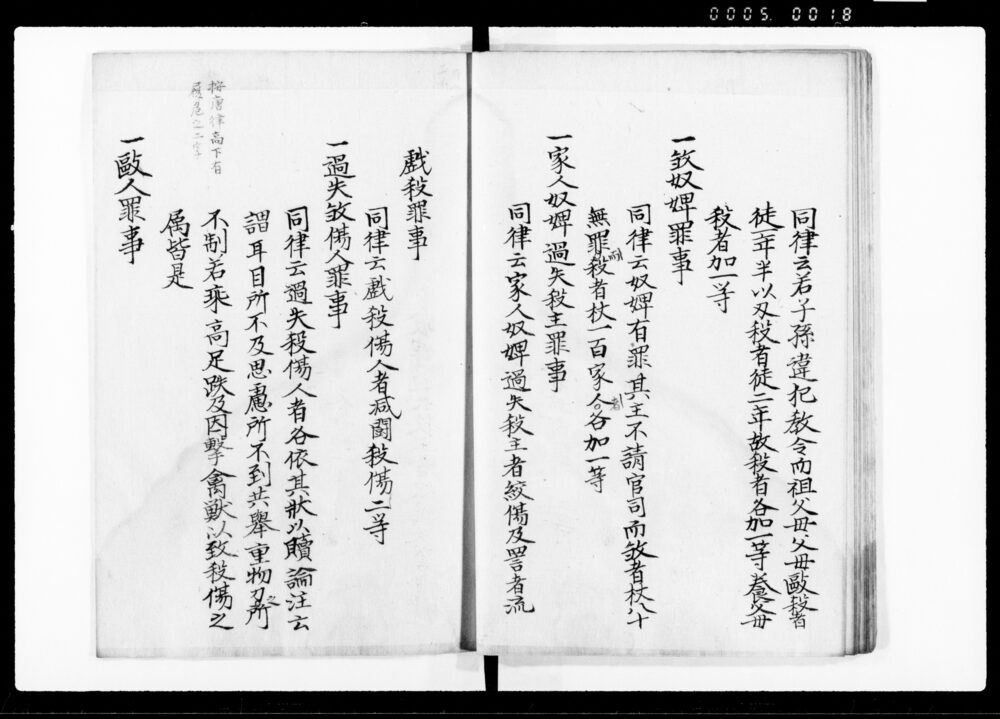 0005. 0018
同律云若子孫違犯教令而祖父母父母毆殺者
徒一年半以刃殺者徒二年故殺者各加一等養父母
殺者加一等
一敘奴婢罪事
同律云奴婢有罪其主不請官司而敘者杖八十
無罪殺者杖一百家人各加一等
者
一家人奴婢過失殺主罪事
同律云家人奴婢過失殺主者絞傷及詈者流
戲殺罪事
同律云戲殺傷人者减鬪殺傷二等
一過失敘傷人罪事
同律云過失殺傷人者各依其狀以贖論注云
謂耳目所不及思慮所不到共舉重物力所
之
不制若乘高足跌及因擊禽獸以致殺傷之
属皆是
唐律高下有
履危之二字
一毆人罪事